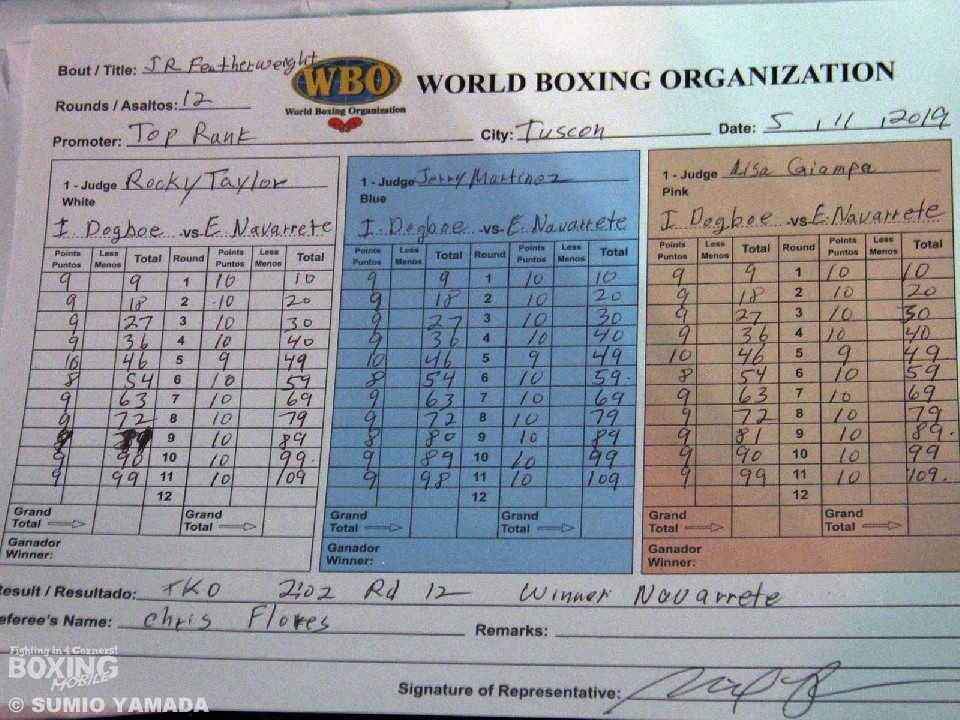 Bout / Title: JR Featherweight
WBO
World Boxing Organization
WORLD BOXING ORGANIZATION
Rounds / Asaltos: 12
Promoter: Top Rank City: Tuscon Date: 5 , 11 , 2019
1 - Judge Rocky Taylor 1 - Judge Jerry Martinez 1 - Judge Lisa Giampa
White Blue Pink
I. Dogboe -vs- E. Navarrete I. Dogboe -vs- E. Navarrete I. Dogboe -vs- E. Navarrete
Points Less Total Round Points Less Total Points Less Total Round Points Less Total Points Less Total Round Points Less Total
Puntos Menos Puntos Menos Puntos Menos Puntos Menos Puntos Menos Puntos Menos
9 9 1 10 10 9 9 1 10 10 9 9 1 10 10
9 18 2 10 20 9 18 2 10 20 9 18 2 10 20
9 27 3 10 30 9 27 3 10 30 9 27 3 10 30
9 36 4 10 40 9 36 4 10 40 9 36 4 10 40
10 46 5 9 49 10 46 5 9 49 10 46 5 9 49
8 54 6 10 59 8 54 6 10 59. 8 54 6 10 59
9 63 7 10 69 9 63 7 10 69 9 63 7 10 69
9 72 8 10 79 9 72 8 10 79 9 72 8 10 79
9 10 89 8 80 9 10 89 9 81 9 10 89.
9 90 10 10 99. 9 89 10 10 99 9 90 10 10 99
9 99 11 10 109 9 98 11 10 109 9 99 11 10 109.
12 12 12
Grand Total Grand Total Grand Total Grand Total Grand Total Grand Total
Ganador Ganador Ganador
Winner: Winner: Winner:
Result / Resultado: TKO 2:02 Rd 12 Winner Navarrete
eferee's Name: Chris Flores Remarks:
Fighting in 4 Corners!
BOXING
MOBILE
Signature of Representative:
© SUMIO YAMADA